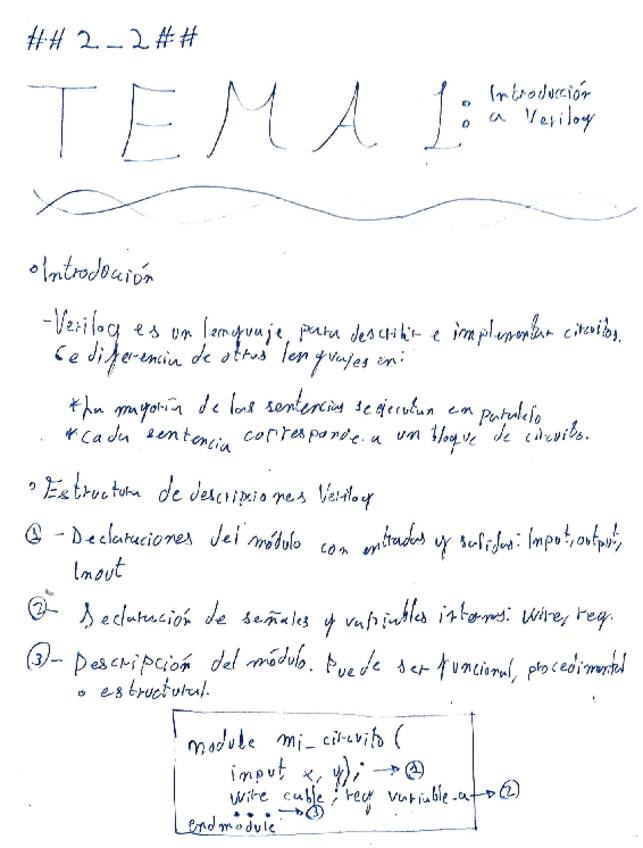 ##2_2##
TEMA 1: Introducción
a Verilog
•Introducción
-Verilog es un lenguaje para describir e implementar circuitos.
Se diferencia de otros lenguajes en:
*La mayoría de las sentencias se ejecutan en paralelo
*Cada sentencia corresponde a un bloque de circuito.
•Estructura de descripciones Verilog
① - Declaraciones del módulo con entradas y salidas: Input, output,
Inout
②- Declaración de señales y variables internas: wire, reg.
③- Descripción del módulo. Puede ser funcional, procedimental
o estructural.
module mi_circuito (
input x, y); → ①
wire cable; reg variable_a → ②
... → ③
endmodule